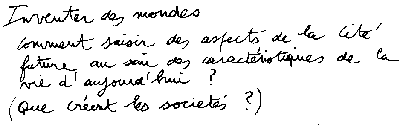 Inventer des mondes
comment saisir des aspects de la Cité
future au sein des caractéristiques de la
vie d'aujourd'hui ?
(Que créent les sociétés ?)